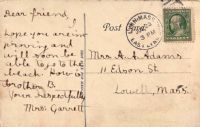 Dear friend,
I
hope you are im
proving and
will soon be
able to go to the
beach. How is
brother B.
Yours respectfully
Mrs. Garrett
Post Card.
Mrs. A. A. Adams
11 Edson St
Lowell, Mass.
3 PM